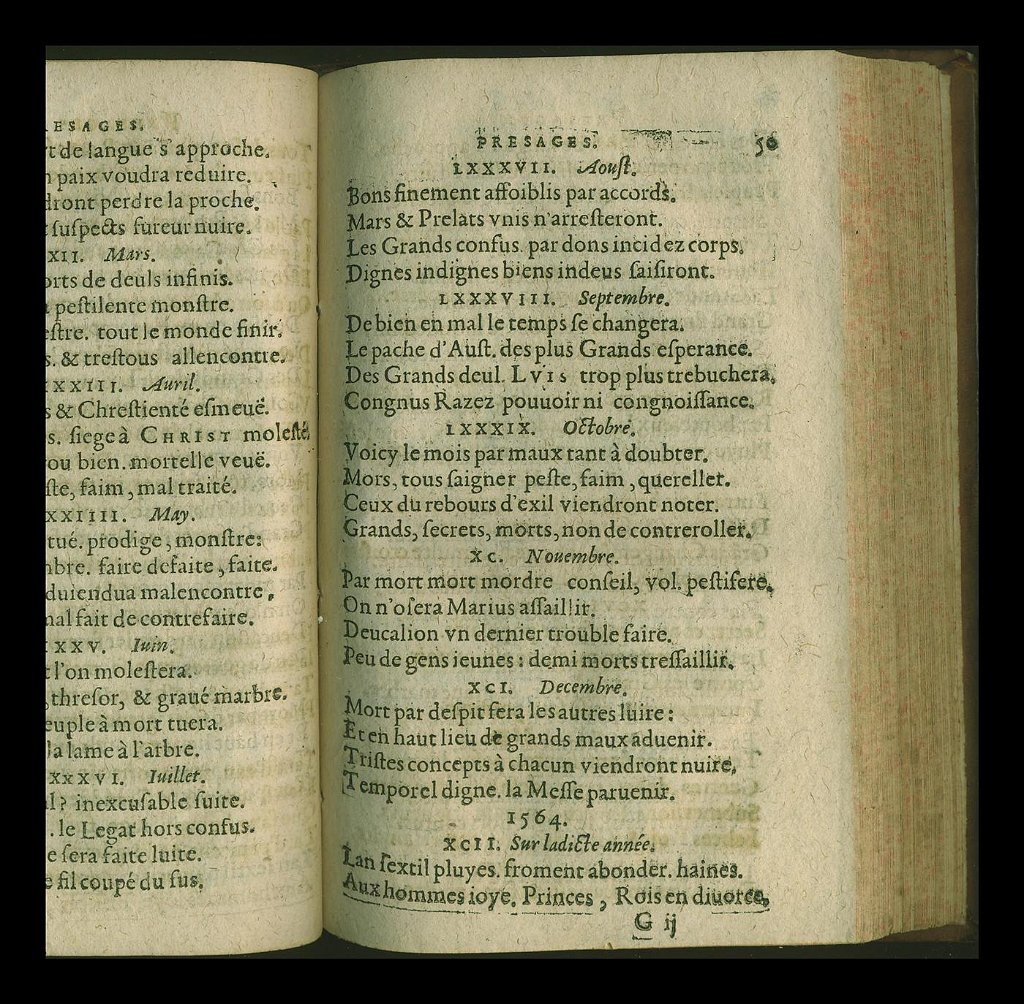 ESAGES.
de langue s'approche.
paix voudra reduire.
dront perdre la proche.
ſuſpects fureur nuire.
XII. Mars.
orts de deuls infinis.
peſtilente monſtre.
eſtre. tout le monde finir.
s. & treſtous allencontre.
XXIII. Auril.
s & Chreſtienté eſmeuë.
s. ſiege à CHRIST moleſté
ou bien. mortelle veuë.
ſte, faim, mal traité.
XXIIII. May.
tué. prodige, monſtre:
bre. faire defaite, faite.
duiendua malencontre,
mal fait de contrefaire.
XXV. Iuin.
t l'on moleſtera.
threſor, & graué marbre.
euple à mort tuera.
la lame à l'arbre.
XXXVI. Iuillet.
l? inexcuſable ſuite.
. le Legat hors confus.
e ſera faite luite.
e fil coupé du ſus,
PRESAGES. 50
LXXXVII. Aouſt.
Bons finement affoiblis par accords.
Mars & Prelats vnis n'arreſteront.
Les Grands confus. par dons incidez corps.
Dignes indignes biens indeus ſaiſiront.
LXXXVIII. Septembre.
De bien en mal le temps ſe changera.
Le pache d'Auſt. des plus Grands eſperance.
Des Grands deul. LVIS trop plus trebuchera.
Congnus Razez pouuoir ni congnoiſſance.
LXXXIX. Octobre.
Voicy le mois par maux tant à doubter.
Mors, tous ſaigner peſte, faim, quereller.
Ceux du rebours d'exil viendront noter.
Grands, ſecrets, morts, non de contreroller.
XC. Nouembre.
Par mort mort mordre conſeil, vol. peſtifere.
On n'oſera Marius aſſaillir.
Deucalion vn dernier trouble faire.
Peu de gens ieunes: demi morts treſſaillir.
XCI. Decembre.
Mort par deſpit fera les autres luire:
Et en haut lieu de grands maux aduenir.
Triſtes concepts à chacun viendront nuire.
Temporel digne. la Meſſe paruenir.
1564.
XCII. Sur ladicte année.
Lan ſextil pluyes. froment abonder. haines.
Aux hommes ioye. Princes, Rois en diuorce.
G ij